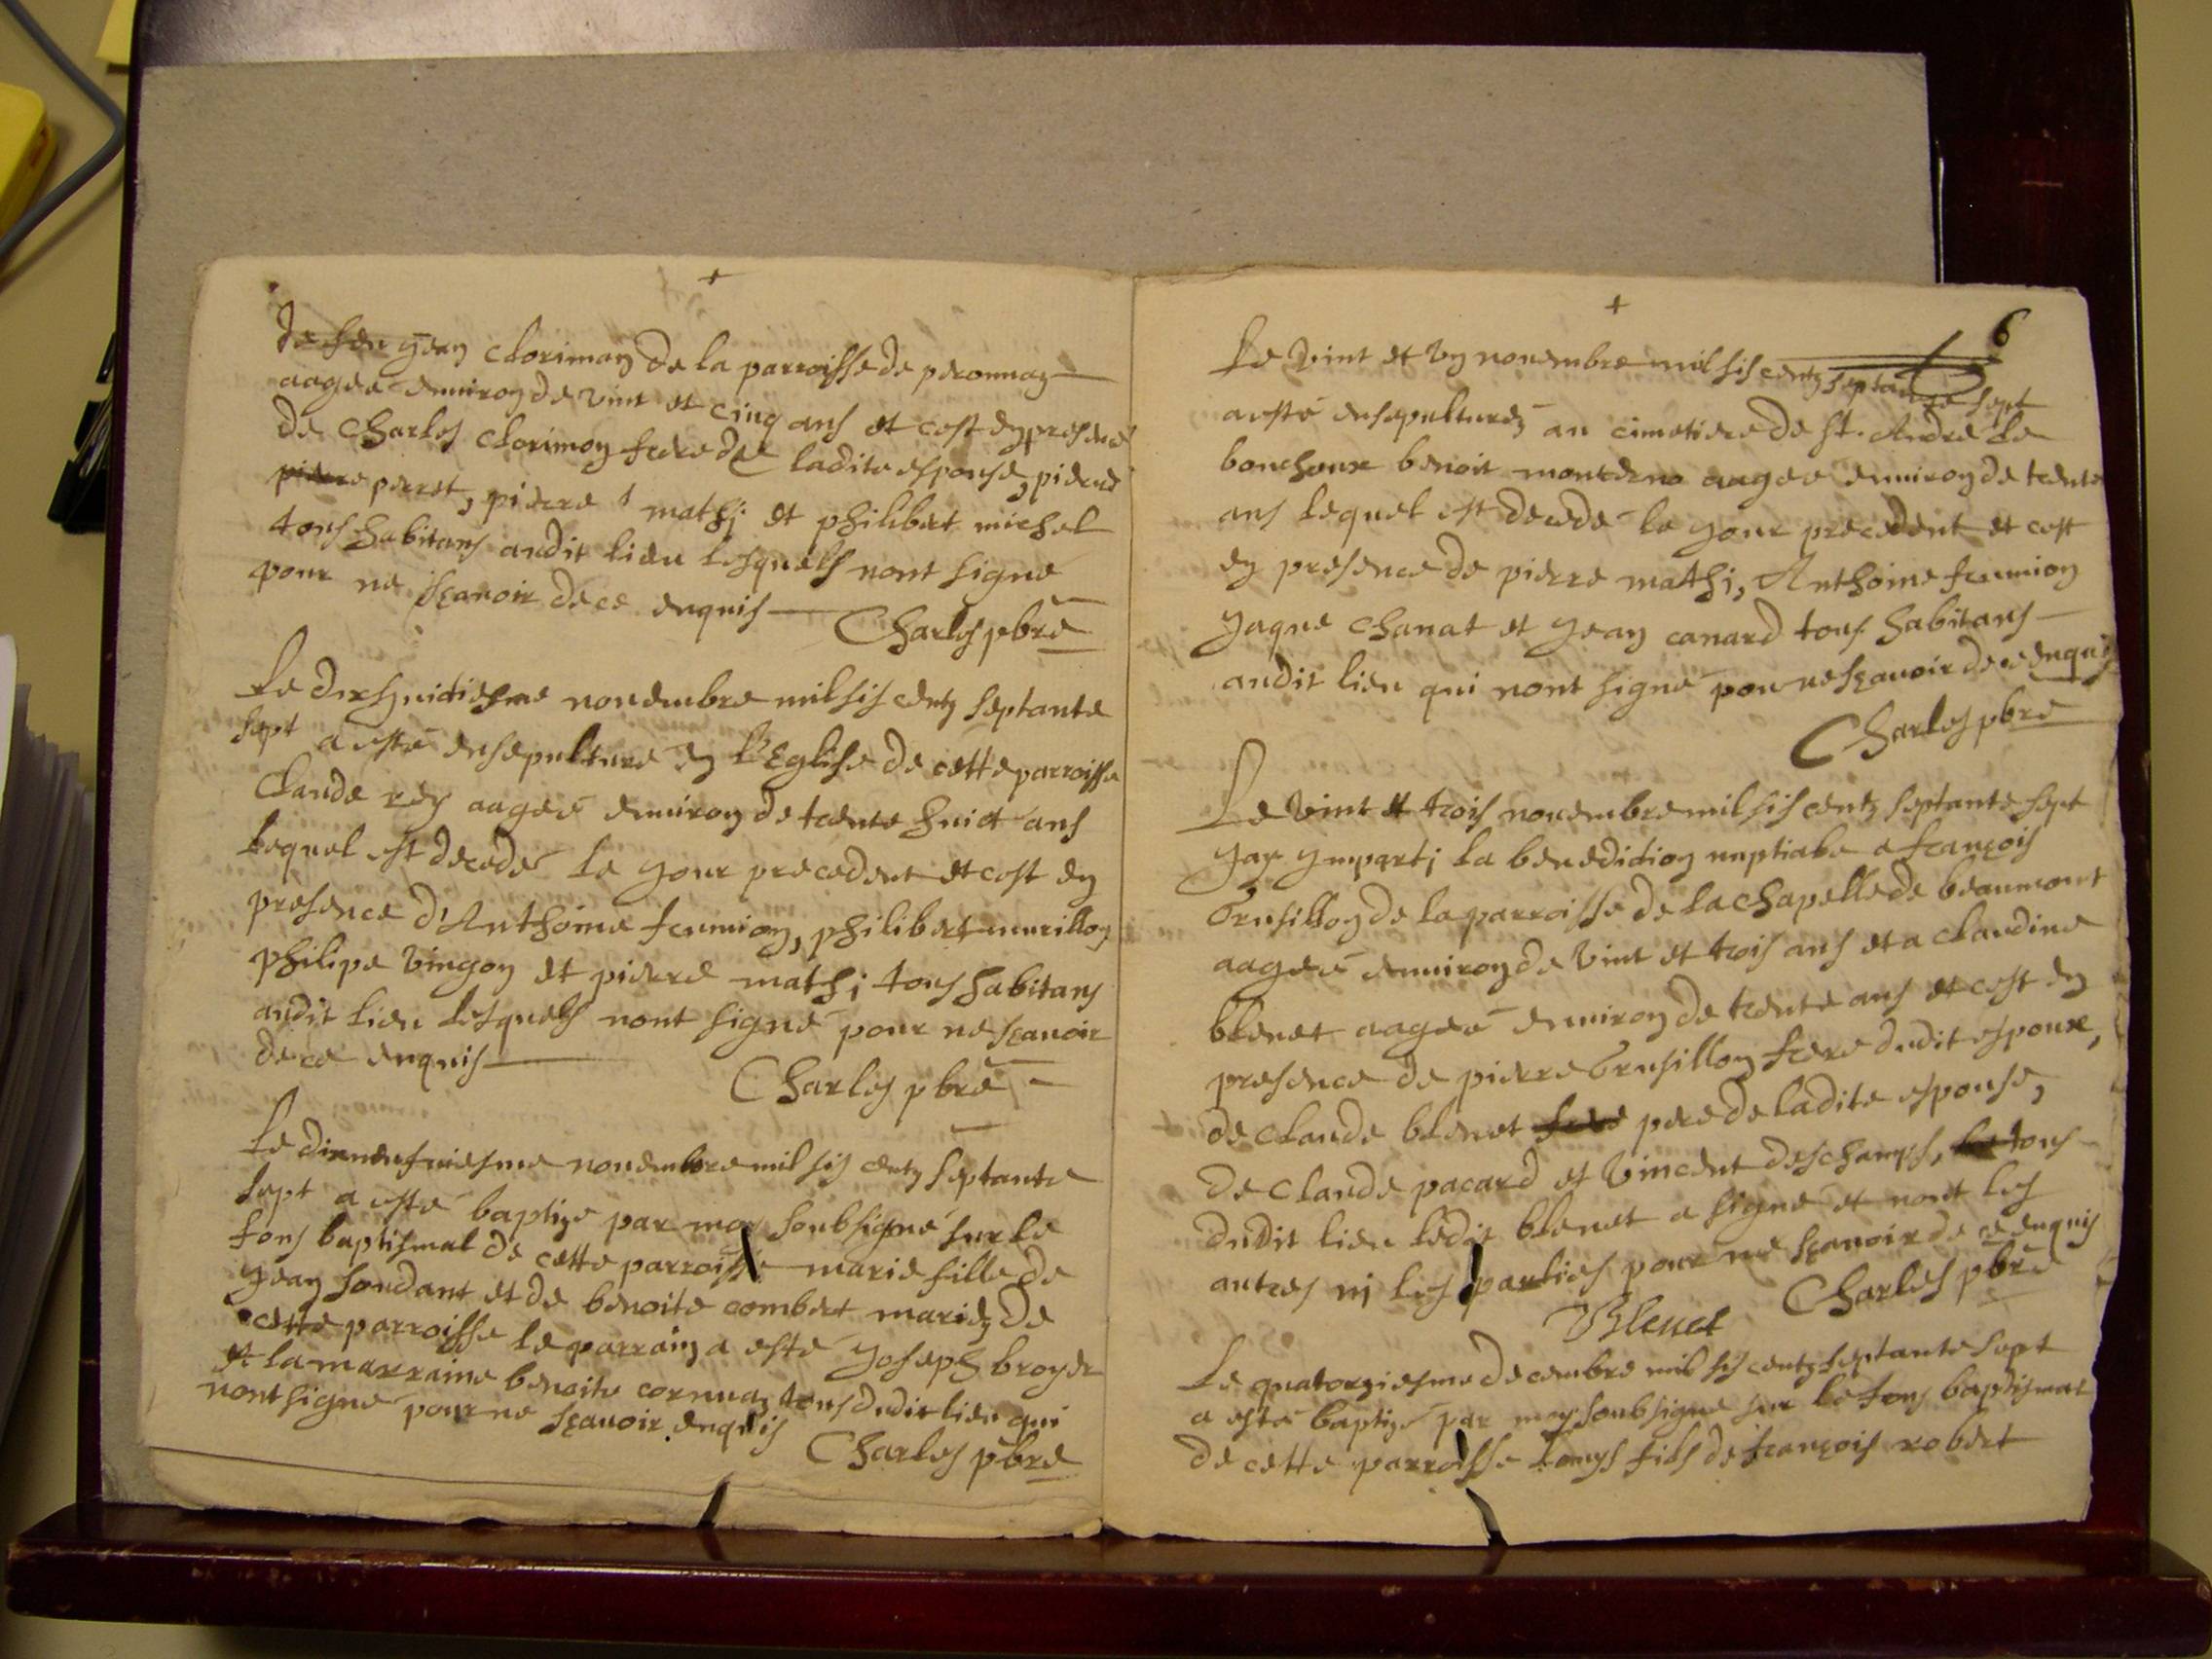 +
de feu gean clorimon de la parroisse de peronnaz
aagée enuiron de vint et cinq ans et cest en presence
de charles clorimon frere de ladite espouse, pierre
pierre perret, pierre mathj et philibert michel
tous habitans audit lieu lesquels nont signe
pour ne sçauoir de ce enquis
Charles pbre
Le dixhuitiesme nouembre mil sis centz septante
sept a esté ensepulture en l'Eglise de cette parroisse
Claude rey aagée enuiron de trente huict ans
lequel est decedé le gour precedent et cest en
presence d'Anthoine, philibert murillon
philipe vingon et pierre mathj tous habitans
audit lieu lesquels nont signé pour ne sçauoir
de ce enquis
Charles pbre
Le dixneufuiesme nouembre mil sis centz septante
sept a esté baptize par moy soubsigné sur le
fons baptismal de cette parroisse marie fille de
gean fondant et de benoite combet mariez de
cette parroisse le parrain a este goseph broyer
et la marraine benoite cornuaz tous dudit lieu qui
nont signe pour ne sçauoir enquis
Charles pbre
+
6
Le vint et vn nouembre mil sis centz septante sept
a esté ensepulturéz au cimetiere de st. André le
bouchoux benoit monterno aagée enuiron de trente
ans lequel est decedé le gour precedent et cest
en presence de pierre mathj, Anthoine
gaque chanat et gean canard tous habitans
audit lieu qui nont signé pour ne sçauoir de ce enquis
Charles pbre
Le vint et trois nouembre mil sis centz septante sept
gay gmpartj la benediction nuptiale a françois
brusillon de la parroisse de la chapelle de beaumont
aagée enuiron de vint et trois ans et a claudine
blenet aagée enuiron de trente ans et cest en
presence de pierre brusillon frere dudit espoux,
de claude blenet frere pere de ladite espouse,
de claude pacard et vincent deschamps, tous
dudit lieu ledit blenet a signé et nont les
autres nj les parties pour ne sçauoir de ce enquis
Blenet Charles pbre
Le quatorziesme decembre mil sis centz septante sept
a esté baptizé par moy soubsigné sur le fons baptismal
de cette parroisse louys fils de françois robert